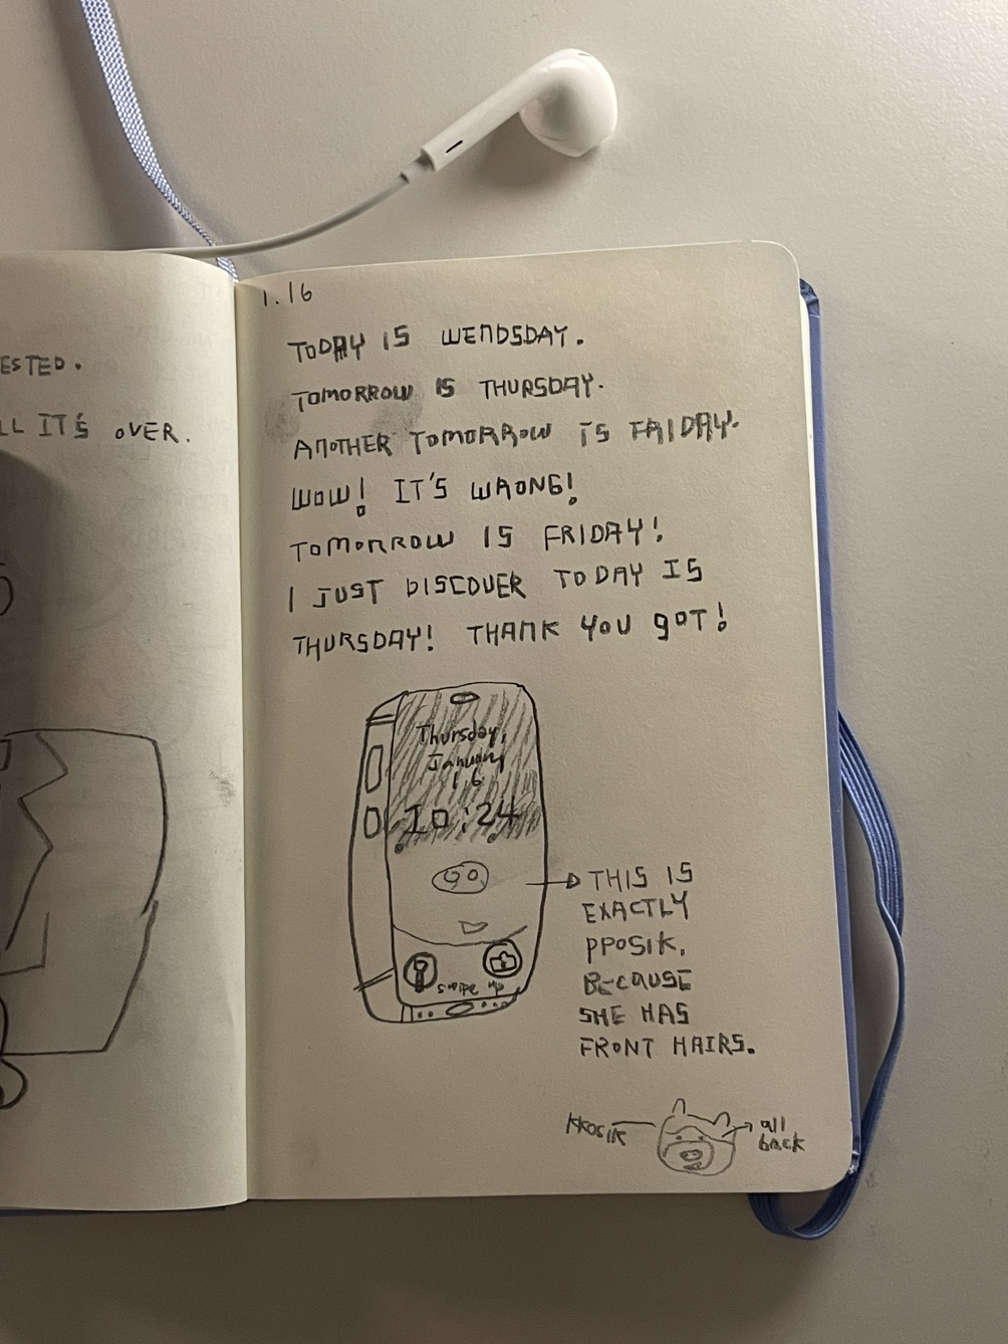 ESTED.
LL IT'S OVER.
1.16
TODAY IS WENDSDAY.
TOMORROW IS THURSDAY.
ANOTHER TOMORROW IS FRIDAY.
WOW! IT'S WRONG!
TOMORROW IS FRIDAY!
I JUST DISCOVER TODAY IS
THURSDAY! THANK YOU GOT!
Thursday,
January
16
10:24
swipe up
THIS IS
EXACTLY
PPOSIK,
BECAUSE
SHE HAS
FRONT HAIRS.
KKOSIK
all
back